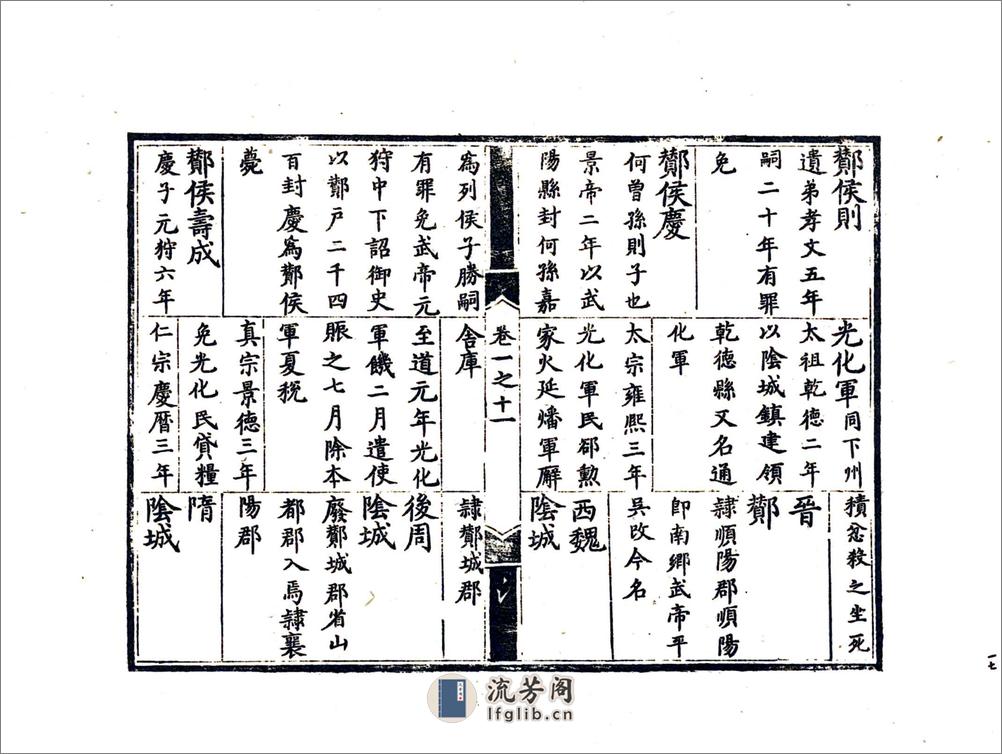 酇侯則
遺弟孝文五年
嗣二十年有罪
免
酇侯慶
何曾孫則子也
景帝二年以武
陽縣封何孫嘉
為列侯子勝嗣
有罪免武帝元
狩中下詔御史
以酇戶二千四
百封慶為酇侯
薨
酇侯壽成
慶子元狩六年
光化軍同下州
太祖乾德二年
以陰城鎮建領
乾德縣又名通
化軍
太宗雍熙三年
光化軍民郤勲
家火延燔軍廨
舍庫
至道元年光化
軍饑二月遣使
賑之七月除本
軍夏稅
真宗景德三年
免光化民貸糧
仁宗慶曆三年
積忿殺之坐死
晉
酇
隸順陽郡順陽
即南鄉武帝平
吳改今名
西魏
陰城
隸酇城郡
後周
陰城
廢酇城郡省山
都郡入焉隸襄
陽郡
隋
陰城
卷一之十一
一七
流芳阁
lfglib.cn